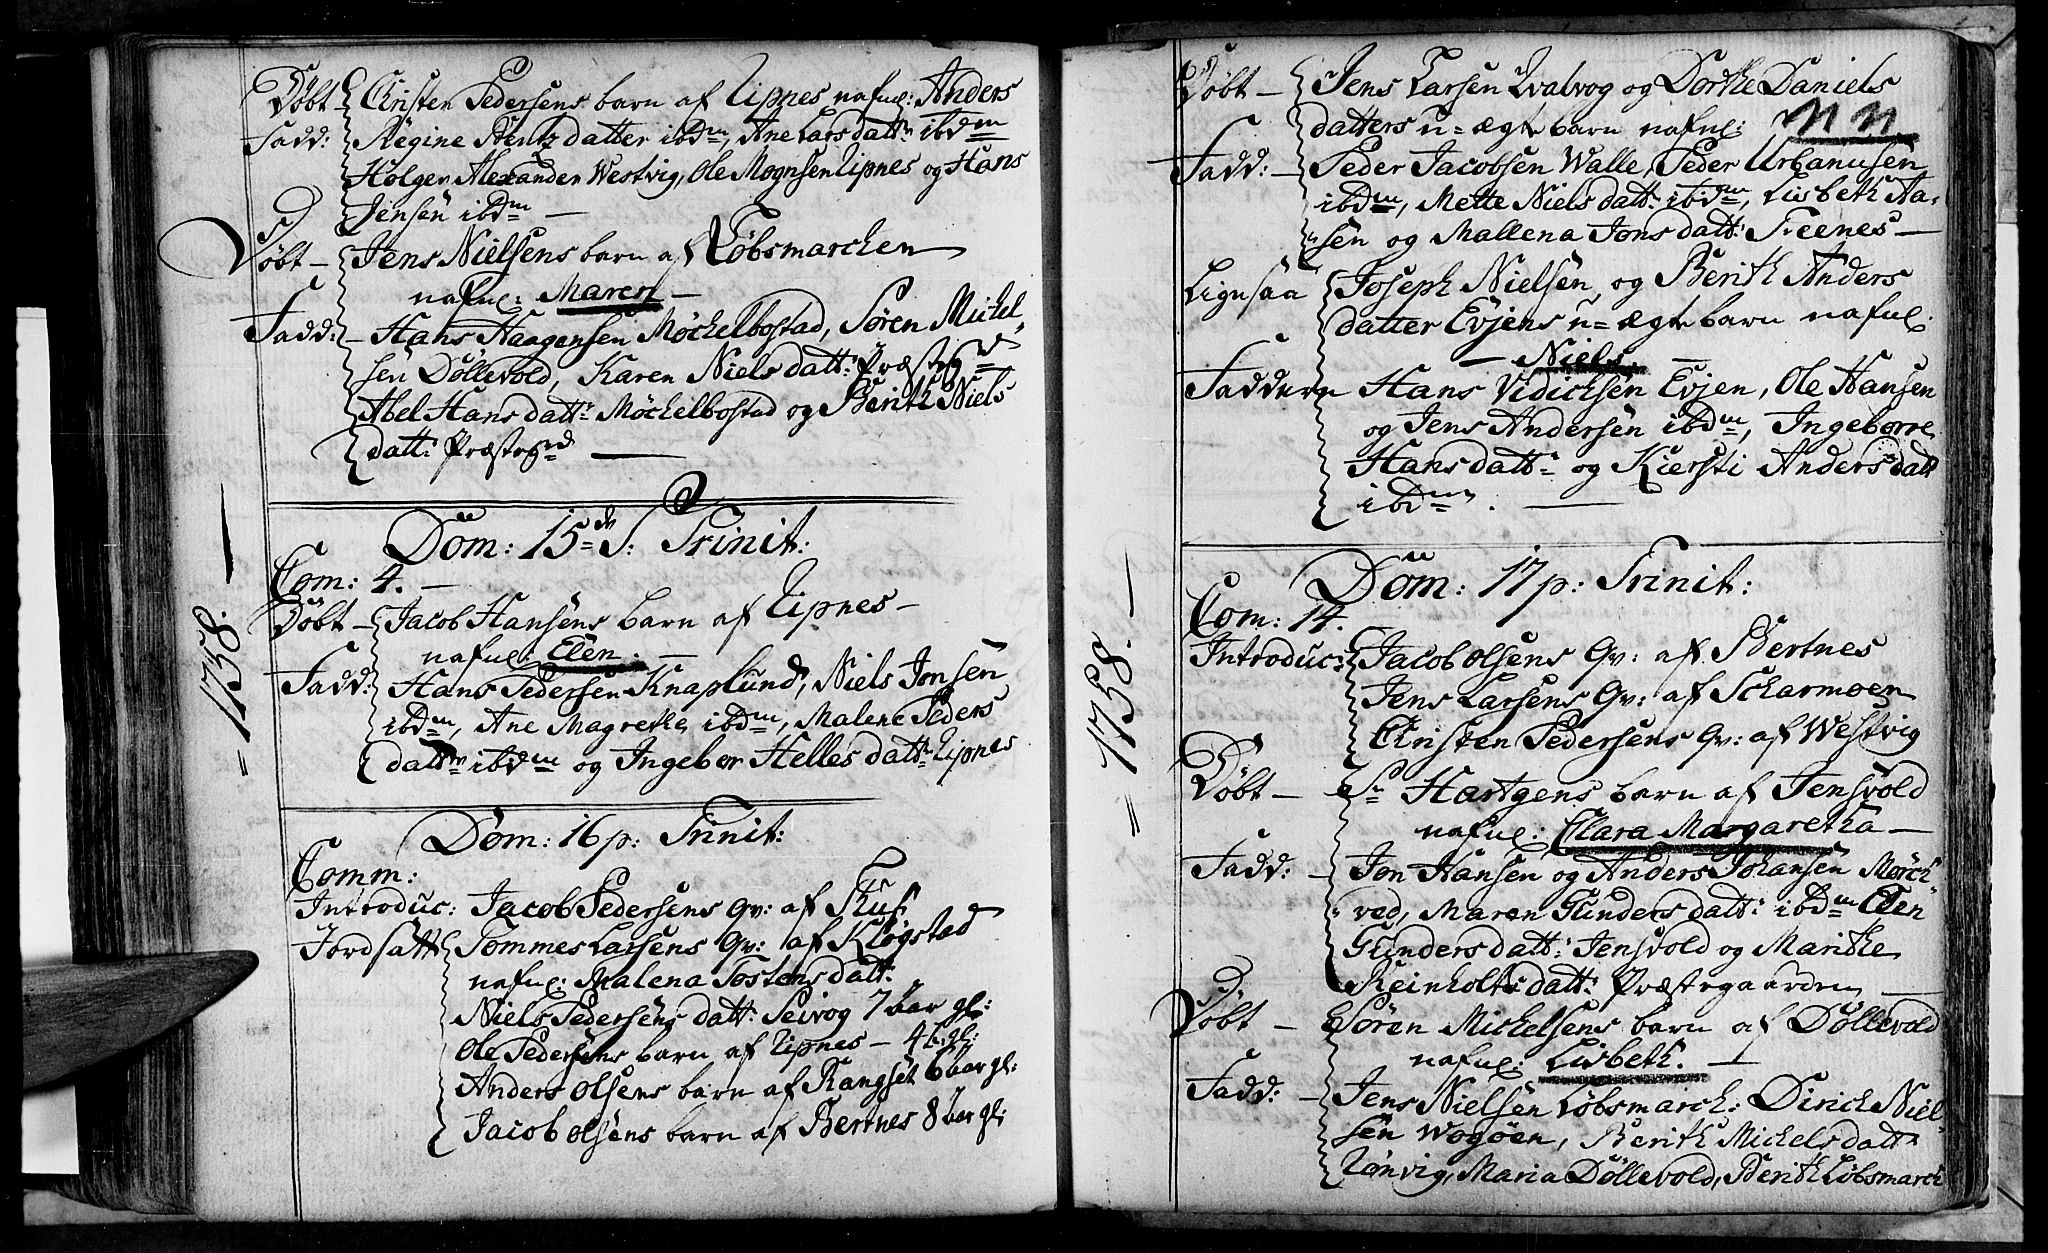 = 1758. —
Döbt Christen Pedersens barn af Lipnes nafnl: Anders
Fadd: Regine Bentz datter ibdm, Ane Lars datt: ibdm
Holger Alexander Westvig, Ole Mognsen Lipnes og Hans
Jensen ibdm —
Döbt — Jens Nielsens barn af Löbsmarchen
nafnl: Maren —
Fadd: — Hans Haagensen Möchelbostad, Sören Michel
sen Döllevold, Karen Niels datt: Præstegd
Abel Hans datt: Möchelbostad og Berith Niels
datt: Præstegd —
Dom: 15de S: Trinit:
Com: 4. —
Döbt — Jacob Hansens barn af Lipnes —
nafnl: Elen. —
Fadd: Hans Pedersen Knaplund, Niels Jonsen
ibdm, Ane Magrethe ibdm, Malene Peders
datt: ibdm og Ingebor Helles datt: Lipnes
Dom: 16 p: Trinit:
Comm:
Introduc: Jacob Pedersens Qv: af
Jordsatt Tommes Larsens Qv: af Klogstad
nafnl: Malena Tostens datt:
Niels Pedersens datt: Seivog 7 aar gl:
Ole Pedersens barn af Lipnes — 4 gl:
Anders Olsens barn af Rangset 6 aar gl:
Jacob Olsens barn af Bertnes 8 aar gl:
= 1758. —
Döbt — Jens Larsen Qvalvog og Dorthe Daniels
datters u=ægte barn nafnl: N N
Fadd: — Peder Jacobsen Walle, Peder Urbanusen
ibdm, Mette Niels datt: ibdm, Lisbeth Aa-
sen og Mallena Jons datt: Treenes —
Lignsaa Joseph Nielsen og Berith Anders
datter Evjens u=ægte barn nafnl.
— Niels —
Faddere Hans Vidichsen Evjen, Ole Hansen
og Jens Andersen ibdm, Ingeborre
Hans datt: og Kiersti Anders datt
ibdm. —
Dom: 17 p: Trinit:
Com: 14.
Introduc: Jacob Olsens Qv: af Bertnes
Jens Larsens Qv: af Scharmoen
Christen Pedersens Qv: af Westvig
Döbt — Sr Hartgens barn af Jensvold
nafnl: Clara Margaretha —
Fadd: — Jon Hansen og Anders Johansen Mörch
ved, Maren Gunders datt: ibdm Elen
Gunders datt: Jensvold og Marithe
Reinholts datt: Præstegaarden —
Döbt — Sören Michelsens barn af Döllevold
nafnl: Lisbeth. —
Fadd: — Jens Nielsen Löbsmarch: Dirich Niel
sen Wogöen, Berith Michels datt
Lönvig, Maria Döllevold, Berith Löbsmarch